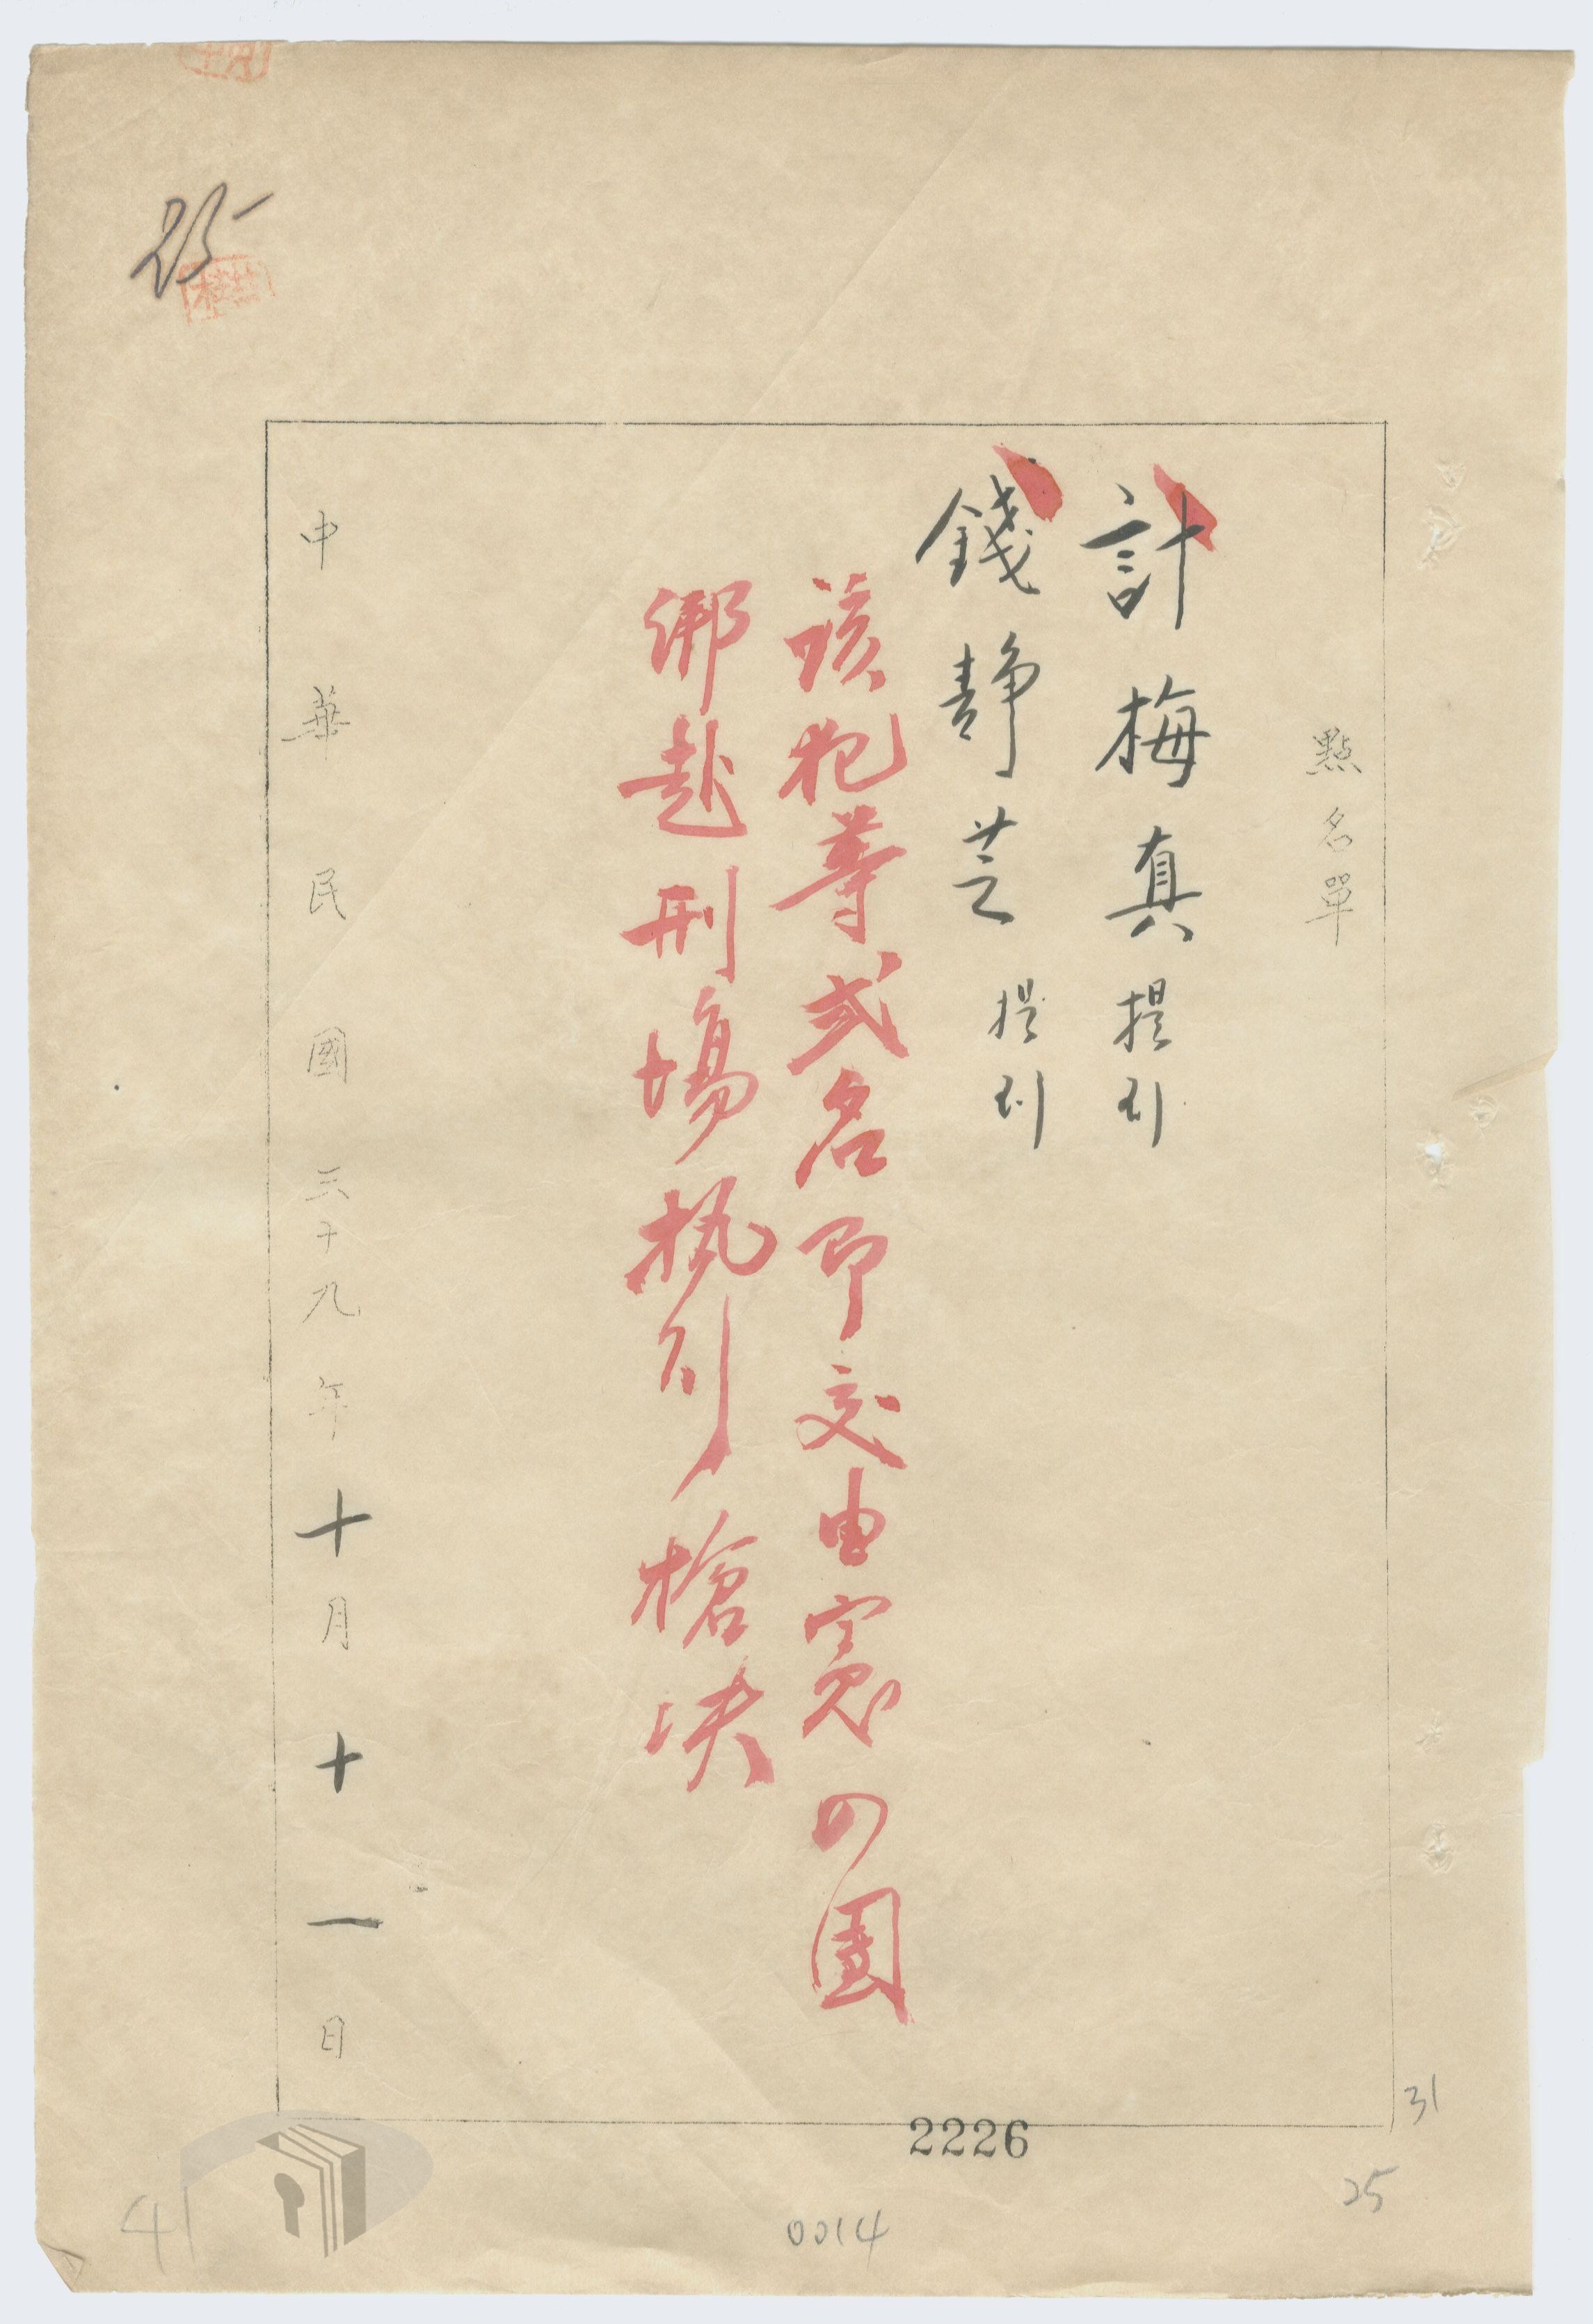 25
點名單
計梅真 提到
錢靜芝 提到
該犯等弍名即交由憲四團
綁赴刑場執行槍決
中華民國三十九年十月十一日
31
2226
25
0014
41